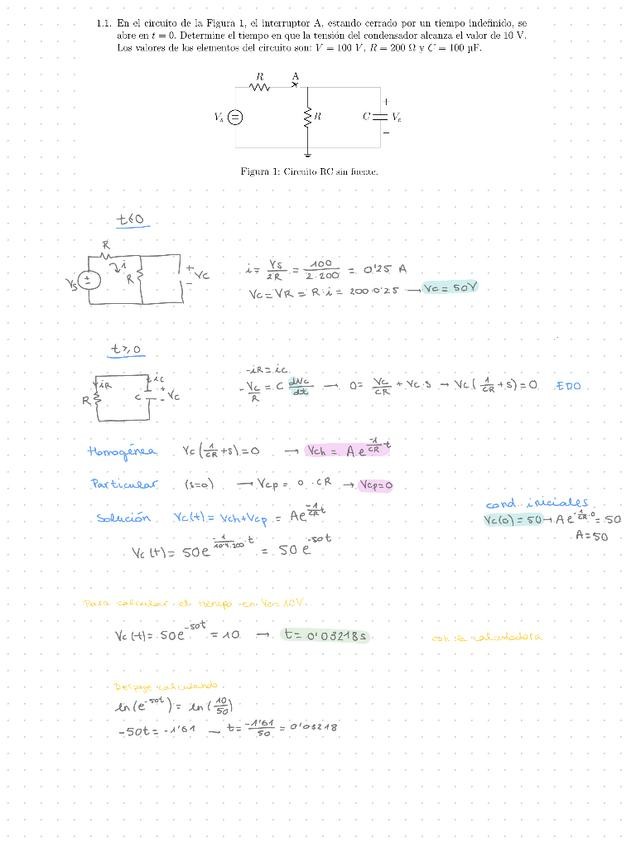 1.1. En el circuito de la Figura 1, el interruptor A, estando cerrado por un tiempo indefinido, se
abre en t = 0. Determine el tiempo en que la tensión del condensador alcanza el valor de 10 V.
Los valores de los elementos del circuito son: V = 100 V, R = 200 Ω y C = 100 µF.
R A
Vs R C + Vc −
Figura 1: Circuito RC sin fuente.
t<0
R
Vs i R + Vc −
i = Vs/2R = 100/2·200 = 0'25 A
Vc = VR = R·i = 200·0'25 → Vc = 50V
t≥0
R iR iC C + Vc −
-iR = ic
-Vc/R = C dVc/dt → 0 = Vc/CR + Vc·s → Vc(1/CR + s) = 0 EDO
Homogénea Vc(1/CR + s) = 0 → Vch = A e^(-1/CR t)
Particular (s=0) → Vcp = 0·CR → Vcp = 0
cond. iniciales
Solución Vc(t) = Vch + Vcp = Ae^(-1/CR t)
Vc(0) = 50 → A e^(-1/CR·0) = 50
A = 50
= 50 e^(-50t)
Para calcular el tiempo en Vc = 10V.
Vc(t) = 50e^(-50t) = 10 → t = 0'03218 s
con la calculadora
Despeje calculando
ln(e^(-50t)) = ln(10/50)
-50t = -1'61 → t = -1'61/50 = 0'03218